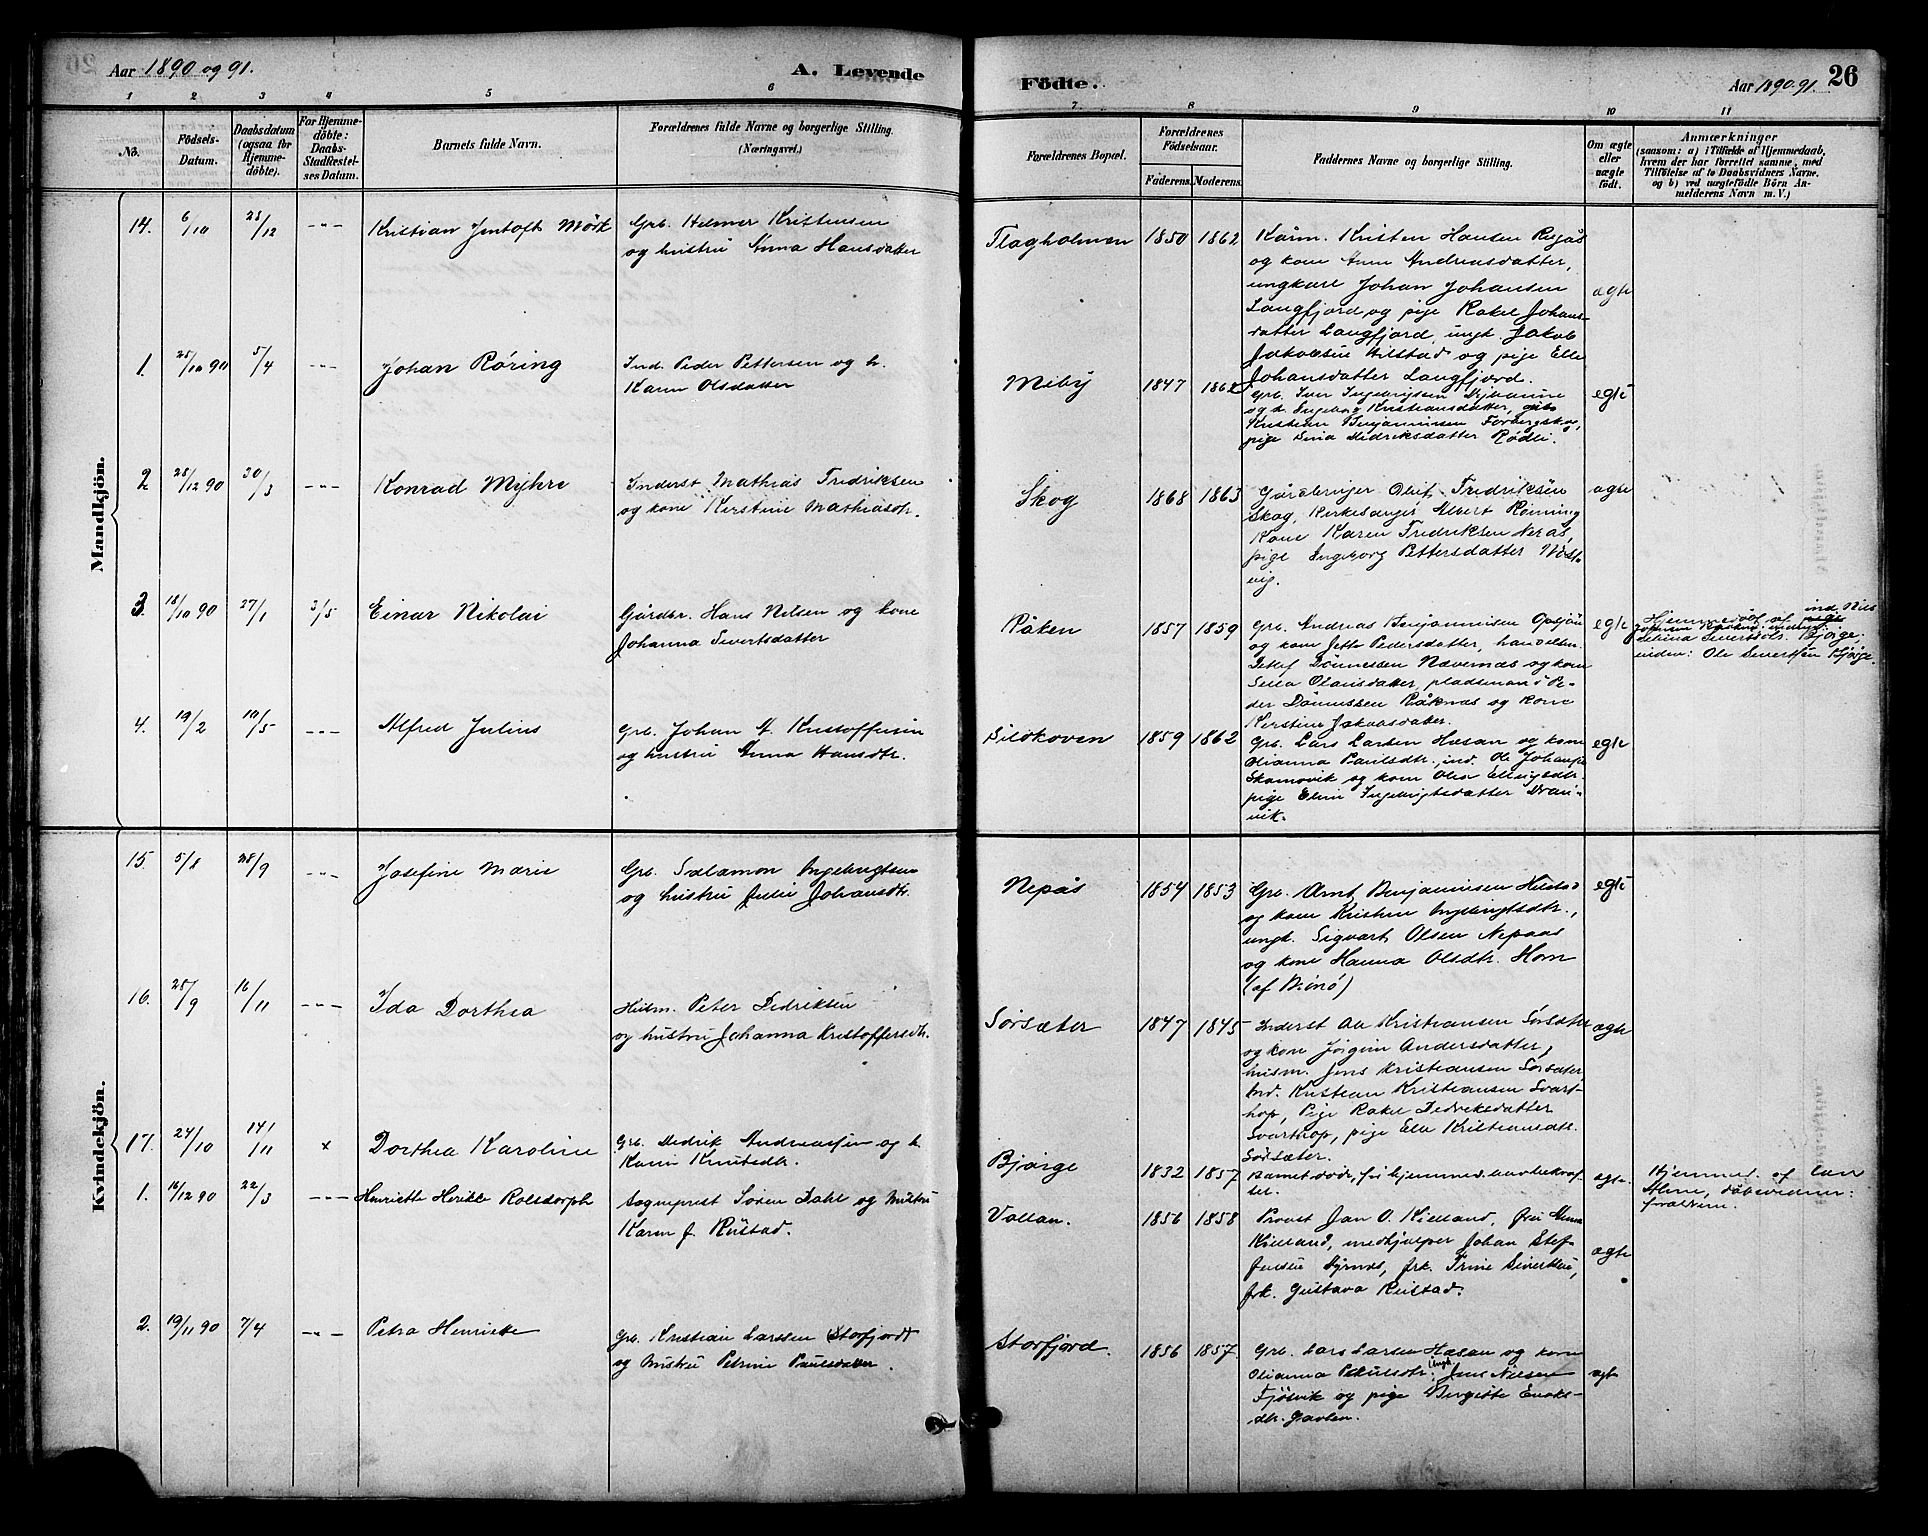 Aar 1890 og 91.
A. Levende
Födte.
Aar 1890-91.
26
1 2 3 4 5 6 7 8 9 10 11
No.
Födsels-
Datum.
Daabsdatum
(ogsaa for
Hjemme-
döbte).
For Hjemme-
döbte:
Daabs-
Stadfæstel-
ses Datum.
Barnets fulde Navn.
Forældrenes fulde Navne og borgerlige Stilling.
(Næringsvei.)
Forældrenes Bopæl.
Forældrenes
Födselsaar.
Faderens. Moderens.
Faddernes Navne og borgerlige Stilling.
Om ægte
eller
uægte
födt.
Anmærkninger
(saasom: a) i Tilfælde af Hjemmedaab,
hvem der har forrettet samme, med
Tilföielse af to Daabsvidners Navne.
og b) ved uægtefödte Börn An-
melderens Navn m. V.)
Mandkjön.
14. 6/10 28/12 -"- Kristian Jentoft Mörk
Grb. Helmer Kristensen
og hustru Anna Hansdatter
Flagholmen 1850 1862
Kårm. Kristen Hansen
og kone Anne Andreasdatter,
ungkarl Johan Johansen
Langfjord og pige Rakel Johans-
datter Langfjord, ungk. Jakob
Jakobsen Hilstad og pige Elle
Johansdatter Langfjord.
ægte
1. 25/10 90 5/4 -"- Johan Röring
Ind. Peder Pettersen og h.
Karen Olsdatter
Miby 1847 1862
Grb. Iver Ingebrigtsen
og h. Ingeborg Kristiansdatter,
Kristian Benjaminsen Forbergskog,
pige Sina Dedriksdatter Rödli.
egte
2 28/12 90 30/3 -"- Konrad Myhre
Inderst Mathias Fredriksen
og kone Kirstine Mathiasdtr.
Skog 1868 1863
Gårdbruger Oluf Fredriksen
Skog, Kirkesanger Albert Rönning
Kone Karen Fredriksen Nerås,
pige Ingeborg Pettersdatter West-
vig.
ægte
3. 18/10 90 27/1 3/5 Einar Nikolai
Gårdbr. Hans Nilsen og kone
Johanna Sivertsdatter
Råken 1857 1859
Grb. Andreas Benjaminsen Opsjön
og kone Jette Pedersdatter, handelsm.
Detlef Dönnessen Nævernæs og kone
Olausdatter, pladsmand Pe-
der Dönnessen Råknæs og kone
Kerstine Jakobsdatter.
egte
Hjemmedöbt af ind. Nils
Bjørge;
viden: Ole Sivertsen Bjørge.
4. 19/2 10/5 -"- Alfred Julius
Grb. Johan A. Kristoffersen
og hustru Anna Hansdtr.
Sildhoven 1859 1862
Grb. Lars Larsen Hæsan og kone
Olianna Paulsdtr., ind. Ole Johansen
Skomovik og kone Olea Ellingsdtr.
pige Elen Ingebrigtsdatter Dran-
vik.
egte
Kvindekjön.
15. 5/8 28/9 -"- Josefine Marie
Grb. Salamon Ingebrigtsen
og hustru Julie Johansdtr.
Nepås 1854 1853
Grb. Arnt Benjaminsen Hilstad
og kone Kristine Ingebrigtsdtr.,
ungk. Sigvart Olsen Nepaas
og kone Hanna Olsdtr. Horn
(af Brönö)
egte
16. 28/9 16/11 -"- Ida Dorthea
Husm. Peter Dedriksen
og hustru Johanna Kristoffersdtr.
Sörsæter 1847 1845
Inderst Ole Kristiansen Sörsæter
og kone Jörgine Andersdatter,
husm. Jens Kristiansen Sörsæter
ind. Kristian Kristiansen Svart-
hop, Pige Rakel Dedriksdatter
Svarthop, pige Elle Kristiansdtr.
Sörsæter.
ægte
17. 24/10 14/11 x Dorthea Karoline
Grb. Didrik Andreassen og h.
Karen Knutsdtr.
Bjørge 1832 1857
Barnet döde, för hjemmed. aavbekræf-
tet.
ægte
Hjemmed. af
döbevidner:
forældrene.
1. 16/12 90 22/3 -"- Henriette Herike Rolsdorph
Sogneprest Sören Dahl og hustru
Karen f. Rustad.
Vollan. 1856 1858
Provst Jan O. Kielland, fru
Kielland, medhjælper Johan Stef-
fensen Dyrnæs, frk. Trine Sivertsen,
frk. Gustava Rustad.
ægte
2. 19/11 90 7/4 -"- Petra Henriette
Grb. Kristian Larssen (Storfjord)
og hustru Petrine Paulsdatter.
Storfjord. 1856 1857
Grb. Lars Larsen Hæsan og kone
Olianna Paulsdtr., ungk. Jens Nilsen
Fjösvik og pige Birgitte Enoks-
dtr. Gavlen.
ægt